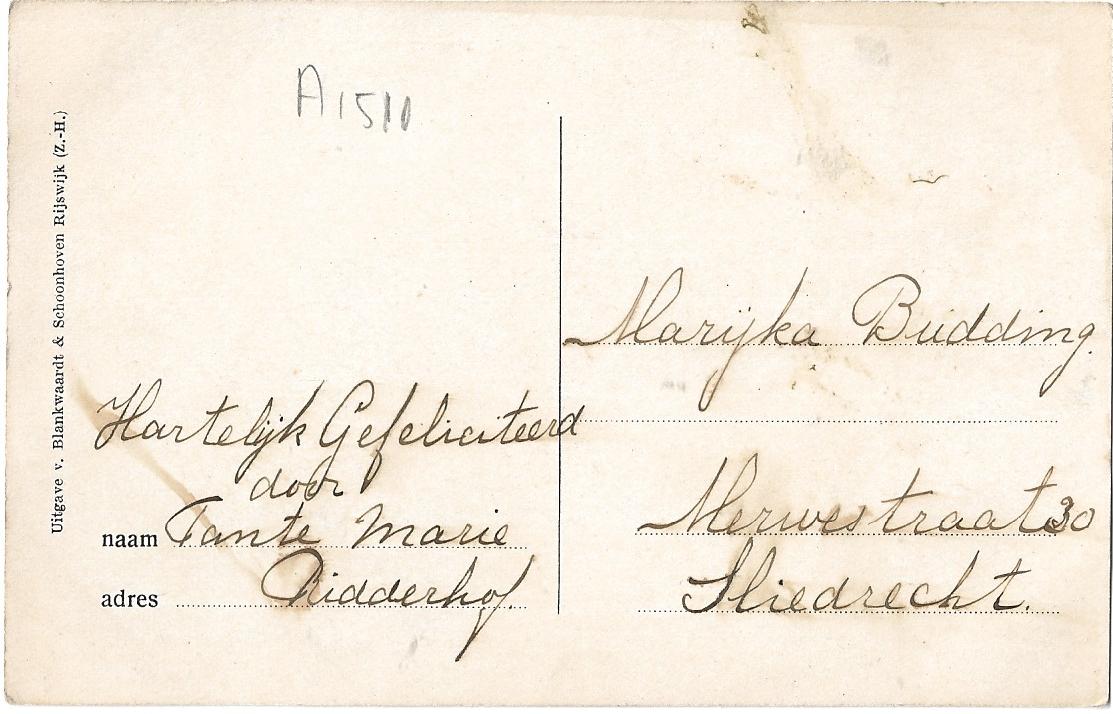 A1511
Uitgave v. Blankwaardt & Schoonhoven Rijswijk (Z.-H.)
Hartelijk Gefeliciteerd
door
naam Tante Marie
adres Ridderhof.
Marijka Budding.
Merwestraat 30
Sliedrecht.